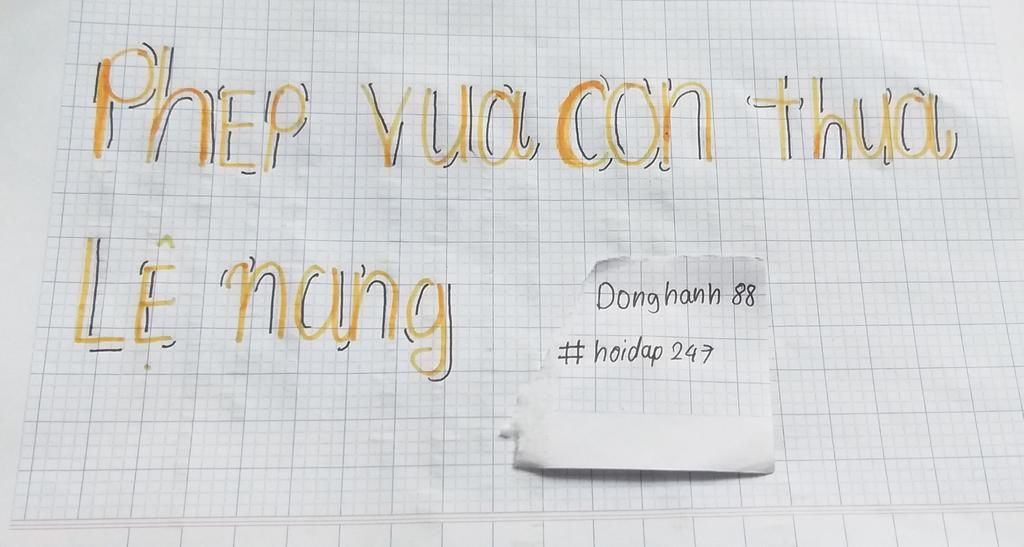 PhEP vua con thua
LỆ nang
Donghanh 88
#hoidap 247